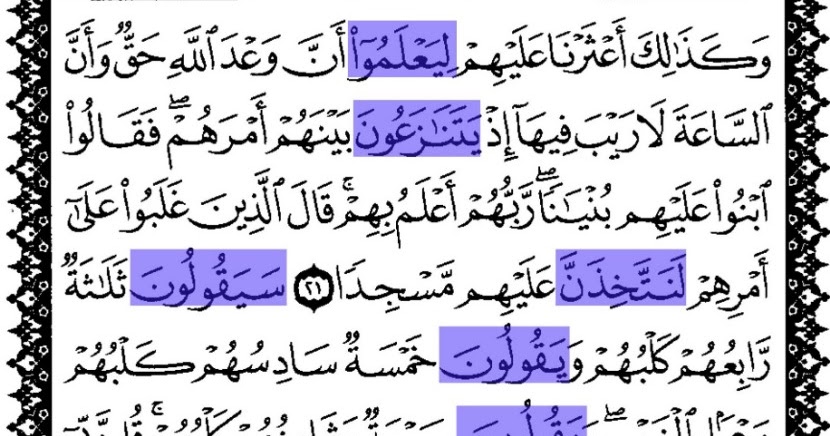 وَكَذَٰلِكَ أَعْثَرْنَا عَلَيْهِمْ لِيَعْلَمُوٓا۟ أَنَّ وَعْدَ ٱللَّهِ حَقٌّ وَأَنَّ
ٱلسَّاعَةَ لَا رَيْبَ فِيهَآ إِذْ يَتَنَـٰزَعُونَ بَيْنَهُمْ أَمْرَهُمْ ۖ فَقَالُوا۟
ٱبْنُوا۟ عَلَيْهِم بُنْيَـٰنًا ۖ رَّبُّهُمْ أَعْلَمُ بِهِمْ ۚ قَالَ ٱلَّذِينَ غَلَبُوا۟ عَلَىٰٓ
أَمْرِهِمْ لَنَتَّخِذَنَّ عَلَيْهِم مَّسْجِدًا ٢١ سَيَقُولُونَ ثَلَـٰثَةٌ
رَّابِعُهُمْ كَلْبُهُمْ وَيَقُولُونَ خَمْسَةٌ سَادِسُهُمْ كَلْبُهُمْ